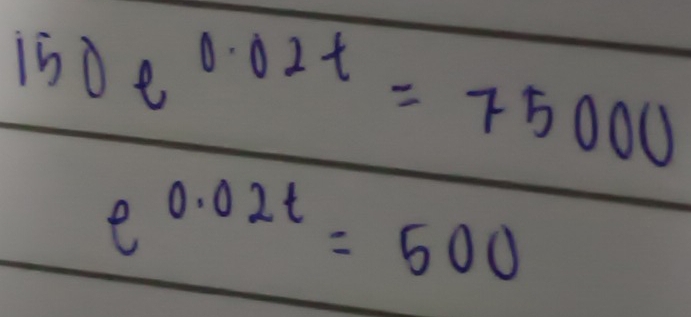 150 e^0.02t = 75000
e^0.02t = 500